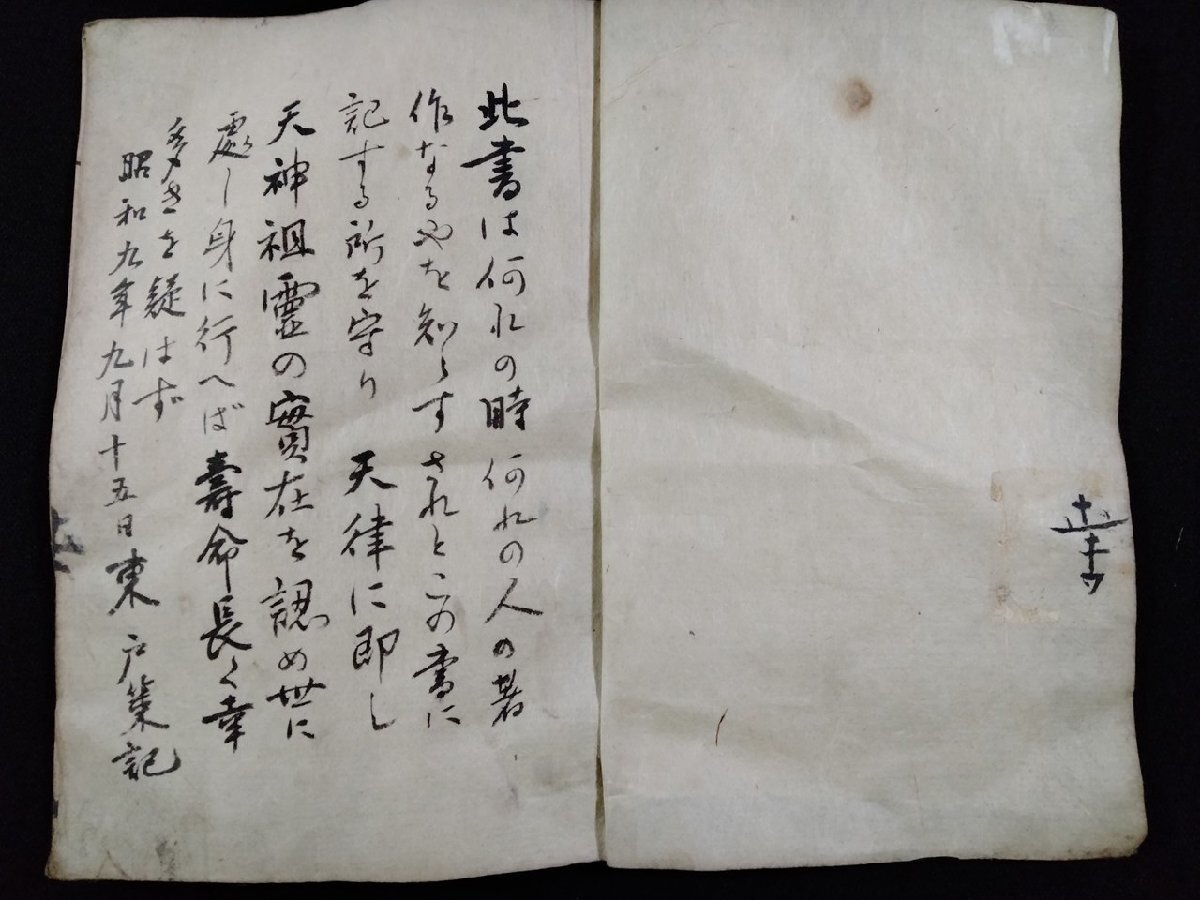 此書は何れの時何れの人の著
作なるやを知らすされとこの書に
記する所を守り 天律に即し
天神祖靈の實在を認め世に
處し身に行へば壽命長く幸
多きを疑はず
昭和九年九月十五日東戸策記